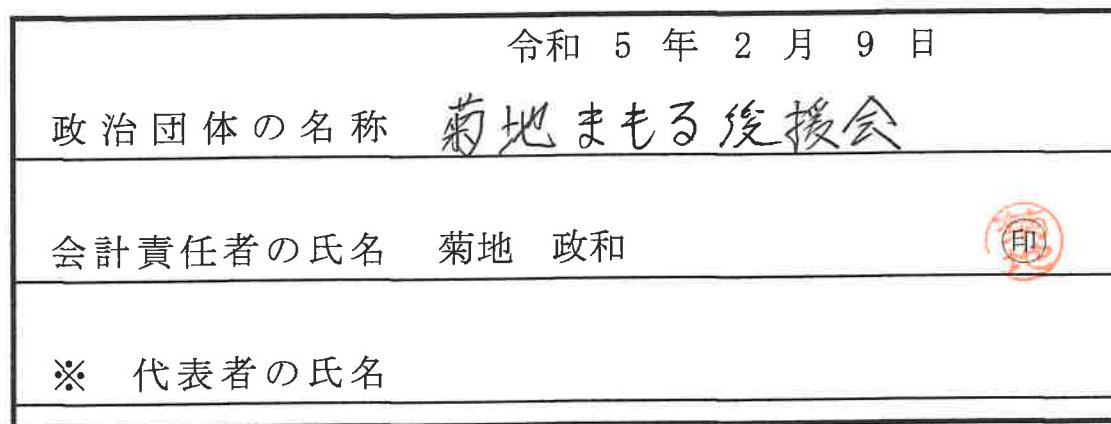 令和 5 年 2 月 9 日
政治団体の名称 菊地まもる後援会
会計責任者の氏名 菊地 政和 印
※ 代表者の氏名